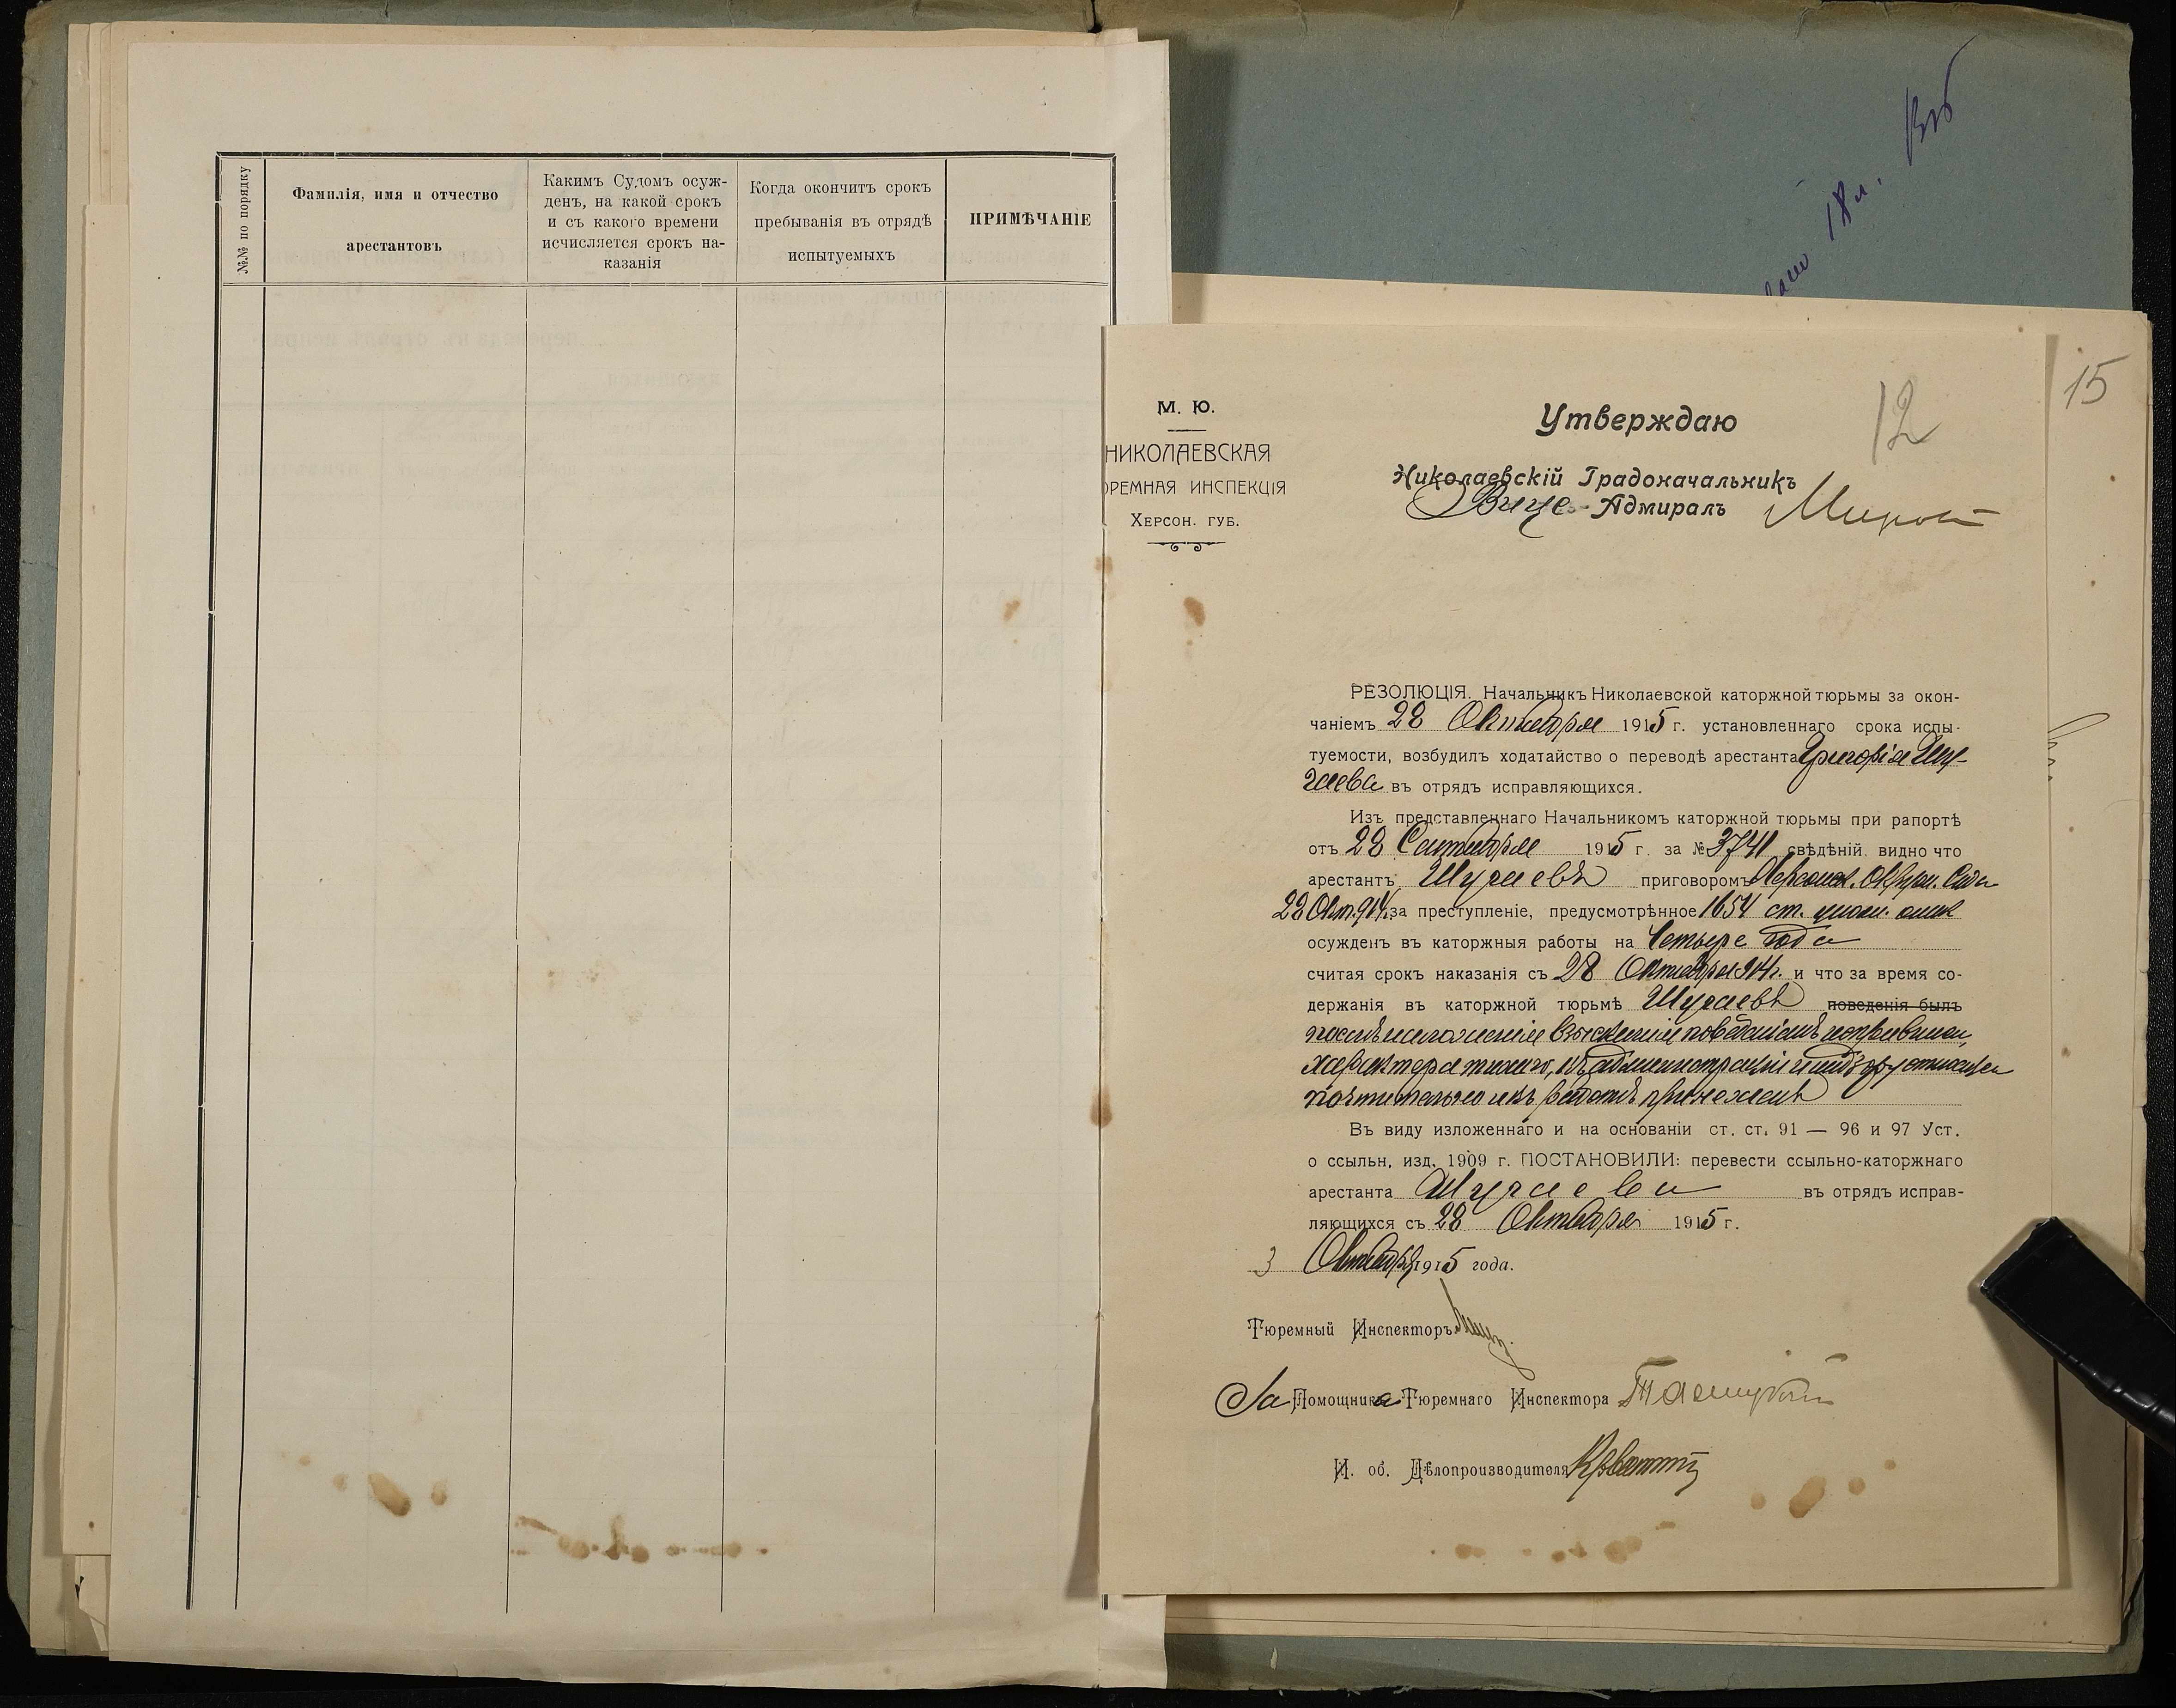 №№ по порядку
Фамилія, имя и отчество
арестантовъ
Какимъ Судомъ осуж-
денъ, на какой срокъ
и съ какого времени
исчисляется срокъ на-
казанія
Когда окончитъ срокъ
пребыванія въ отрядѣ
испытуемыхъ
ПРИМѢЧАНІЕ
18 л.
15
12
М. Ю.
НИКОЛАЕВСКАЯ
ОРЕМНАЯ ИНСПЕКЦІЯ
ХЕРСОН. ГУБ.
Утверждаю
Николаевскій Градоначальникъ
Вице-Адмиралъ
РЕЗОЛЮЦІЯ. Начальникъ Николаевской каторжной тюрьмы за окон-
чаніемъ 28 Октября 1915 г. установленнаго срока испы-
туемости, возбудилъ ходатайство о переводѣ арестанта Григорія Шу-
гаева въ отрядъ исправляющихся.
Изъ представленнаго Начальникомъ каторжной тюрьмы при рапортѣ
отъ 28 Сентября 1915 г. за № 3741 свѣдѣній видно что
арестантъ Шугаевъ приговоромъ Херсонск. Окруж. Суда
28 Окт. 914 г. за преступленіе, предусмотрѣнное 1654 ст. улож. о нак
осужденъ въ каторжныя работы на Четыре года
считая срокъ наказанія съ 28 Октября 914 г. и что за время со-
держанія въ каторжной тюрьмѣ Шугаевъ поведенія былъ
послѣ наложенія взысканія поведеніемъ исправился,
характера тихаго, къ администраціи и надзору относился
почтительно и къ работѣ прилеженъ
Въ виду изложеннаго и на основаніи ст. ст. 91 — 96 и 97 Уст.
о ссыльн, изд. 1909 г. ПОСТАНОВИЛИ: перевести ссыльно-каторжнаго
арестанта Шугаева въ отрядъ исправ-
ляющихся съ 28 Октября 1915 г.
3 Октября 1915 года.
Тюремный Инспекторъ
За Помощника Тюремнаго Инспектора
И. об. Дѣлопроизводителя